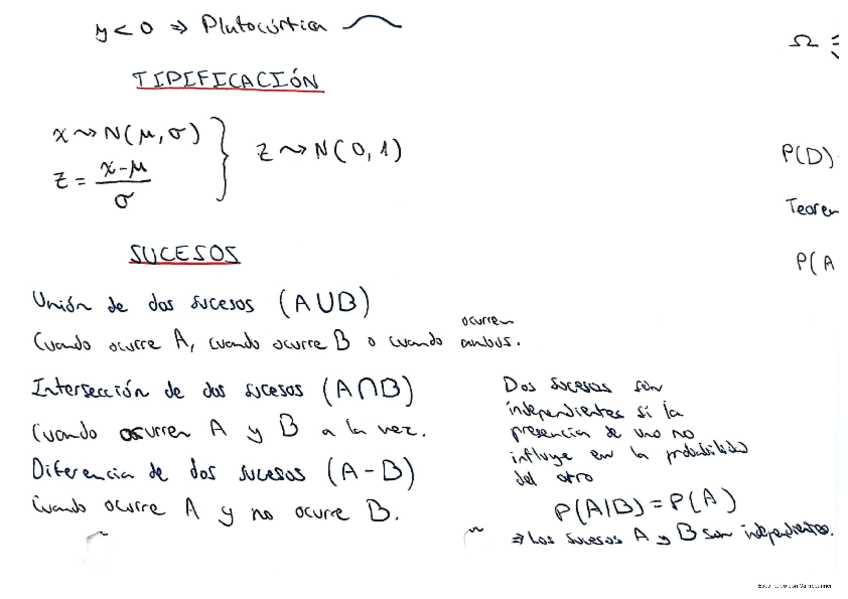 y < 0 ⇒ Platocúrtica
TIPIFICACIÓN
x ⇝ N(μ, σ)
z = (x-μ)/σ
z ⇝ N(0, 1)
SUCESOS
Unión de dos sucesos (A∪B)
Cuando ocurre A, cuando ocurre B o cuando ocurren ambos.
Intersección de dos sucesos (A∩B)
Cuando ocurren A y B a la vez.
Diferencia de dos sucesos (A - B)
Cuando ocurre A y no ocurre B.
Dos sucesos son
independientes si la
presencia de uno no
influye en la probabilidad
del otro
P(A|B) = P(A)
⇒ Los sucesos A y B son independientes.
Ω =
P(D)
Teorem
P(A